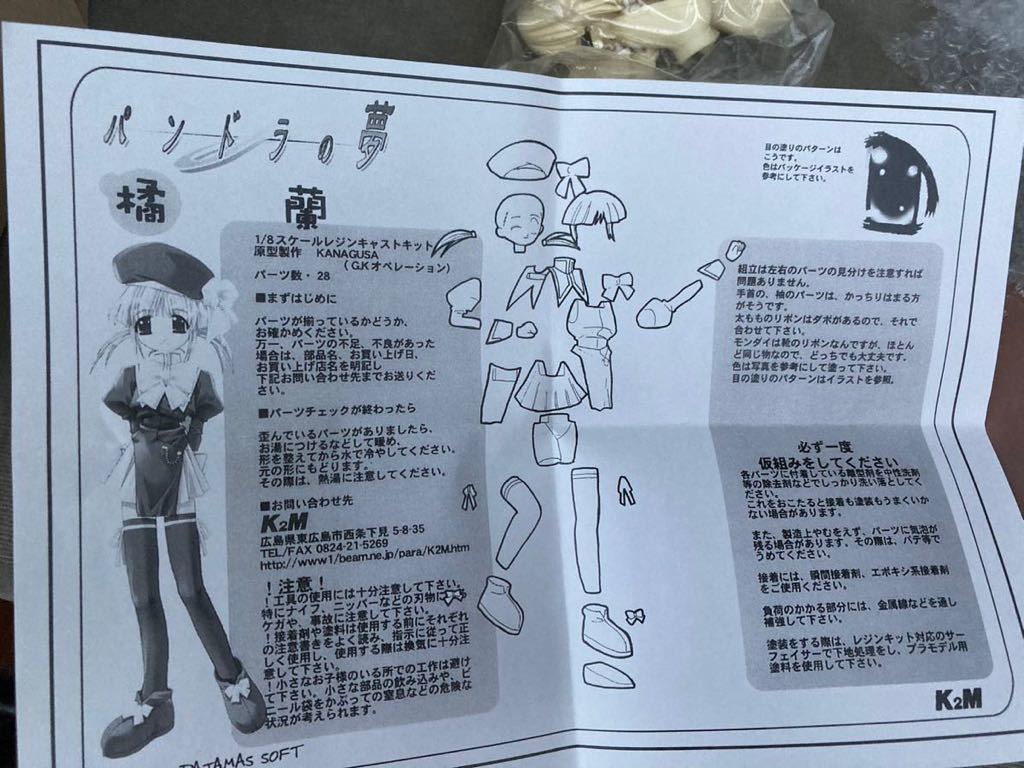 パンドラの夢
橘 蘭
1/8スケールレジンキャストキット
原型製作 KANAGUSA
(G.Kオペレーション)
パーツ数・28
■まずはじめに
パーツが揃っているかどうか、
お確かめください。
万一、パーツの不足、不良があった
場合は、部品名、お買い上げ日、
お買い上げ店名を明記し
下記お問い合わせ先までお送りくだ
さい。
■パーツチェックが終わったら
歪んでいるパーツがありましたら、
お湯につけるなどして暖め、
形を整えてから水で冷やしてください。
元の形にもどります。
その際は、熱湯に注意してください。
■お問い合わせ先
K2M
広島県東広島市西条下見 5-8-35
TEL/FAX 0824-21-5269
http://www1/beam.ne.jp/para/K2M.htm
！注意！
！工具の使用には十分注意して下さい。
特にナイフ、ニッパーなどの刃物に
ケガや、事故に注意して下さい。
！接着剤や塗料は使用する前にそれぞれ
の注意書きをよく読み、指示に従って正
しく使用し、使用する際は換気に十分注
意して下さい。
！小さなお子様のいる所での工作は避け
て下さい。小さな部品の飲み込みや、ビ
ニール袋をかぶっての窒息などの危険な
状況が考えられます。
PAJAMAS SOFT
目の塗りのパターンは
こうです。
色はパッケージイラストを
参考にして下さい。
組立は左右のパーツの見分けを注意すれば
問題ありません。
手首の、袖のパーツは、かっちりはまる方
がそうです。
太もものリボンはダボがあるので、それで
合わせて下さい。
モンダイは靴のリボンなんですが、ほとん
ど同じ物なので、どっちでも大丈夫です。
色は写真を参考にして塗って下さい。
目の塗りのパターンはイラストを参照。
必ず一度
仮組みをしてください
各パーツに付着している離型剤を中性洗剤
等の除去剤などでしっかり洗い落としてく
ださい。
これをおこたると接着も塗装もうまくいか
ない場合があります。
また、製造上やむをえず、パーツに気泡が
残る場合があります。その際は、パテ等で
うめてください。
接着には、瞬間接着剤、エポキシ系接着剤
をご使用ください。
負荷のかかる部分には、金属線などを通し
補強して下さい。
塗装をする際は、レジンキット対応のサー
フェイサーで下地処理をし、プラモデル用
塗料を使用して下さい。
K2M